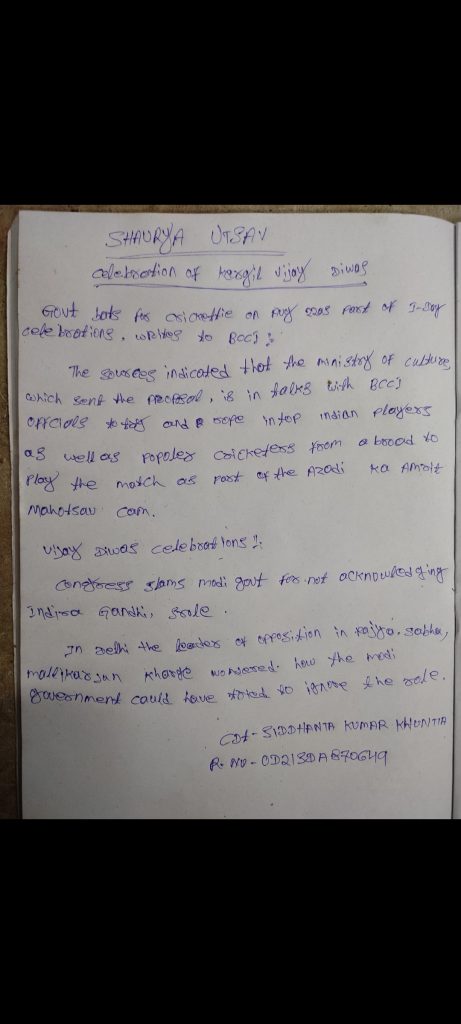 SHAURYA UTSAV
celebration of kergil vijoy Diwas
Govt bats for crickettie on Aug 22as Part of I-Day
celebrations, writes to BCCI :
The sources indicated that the ministry of culture
which sent the proposal, is in talks with BCCI
officials to try and rope intop indian players
as well as popoler cricketers from a broad to
play the match as part of the Azadi ka Amrit
Mahotsav cam.
vijay Diwas celebrations :
congress slams modi govt for not acknowledging
Indira Gandhi, role.
In Delhi the leader of opposition in Rajya. sabha,
mallikarjun kharge wondered. how the modi
government could have tried to ignore the role.
CDt - SIDDHANTA KUMAR KHUNTIA
R. NO - OD21SDA870649